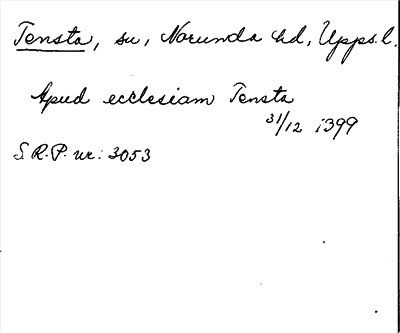 Tensta, sn, Norunda hd, Upps.l.
Apud ecclesiam Tensta
31/12 1399
S.R.P. nr: 3053